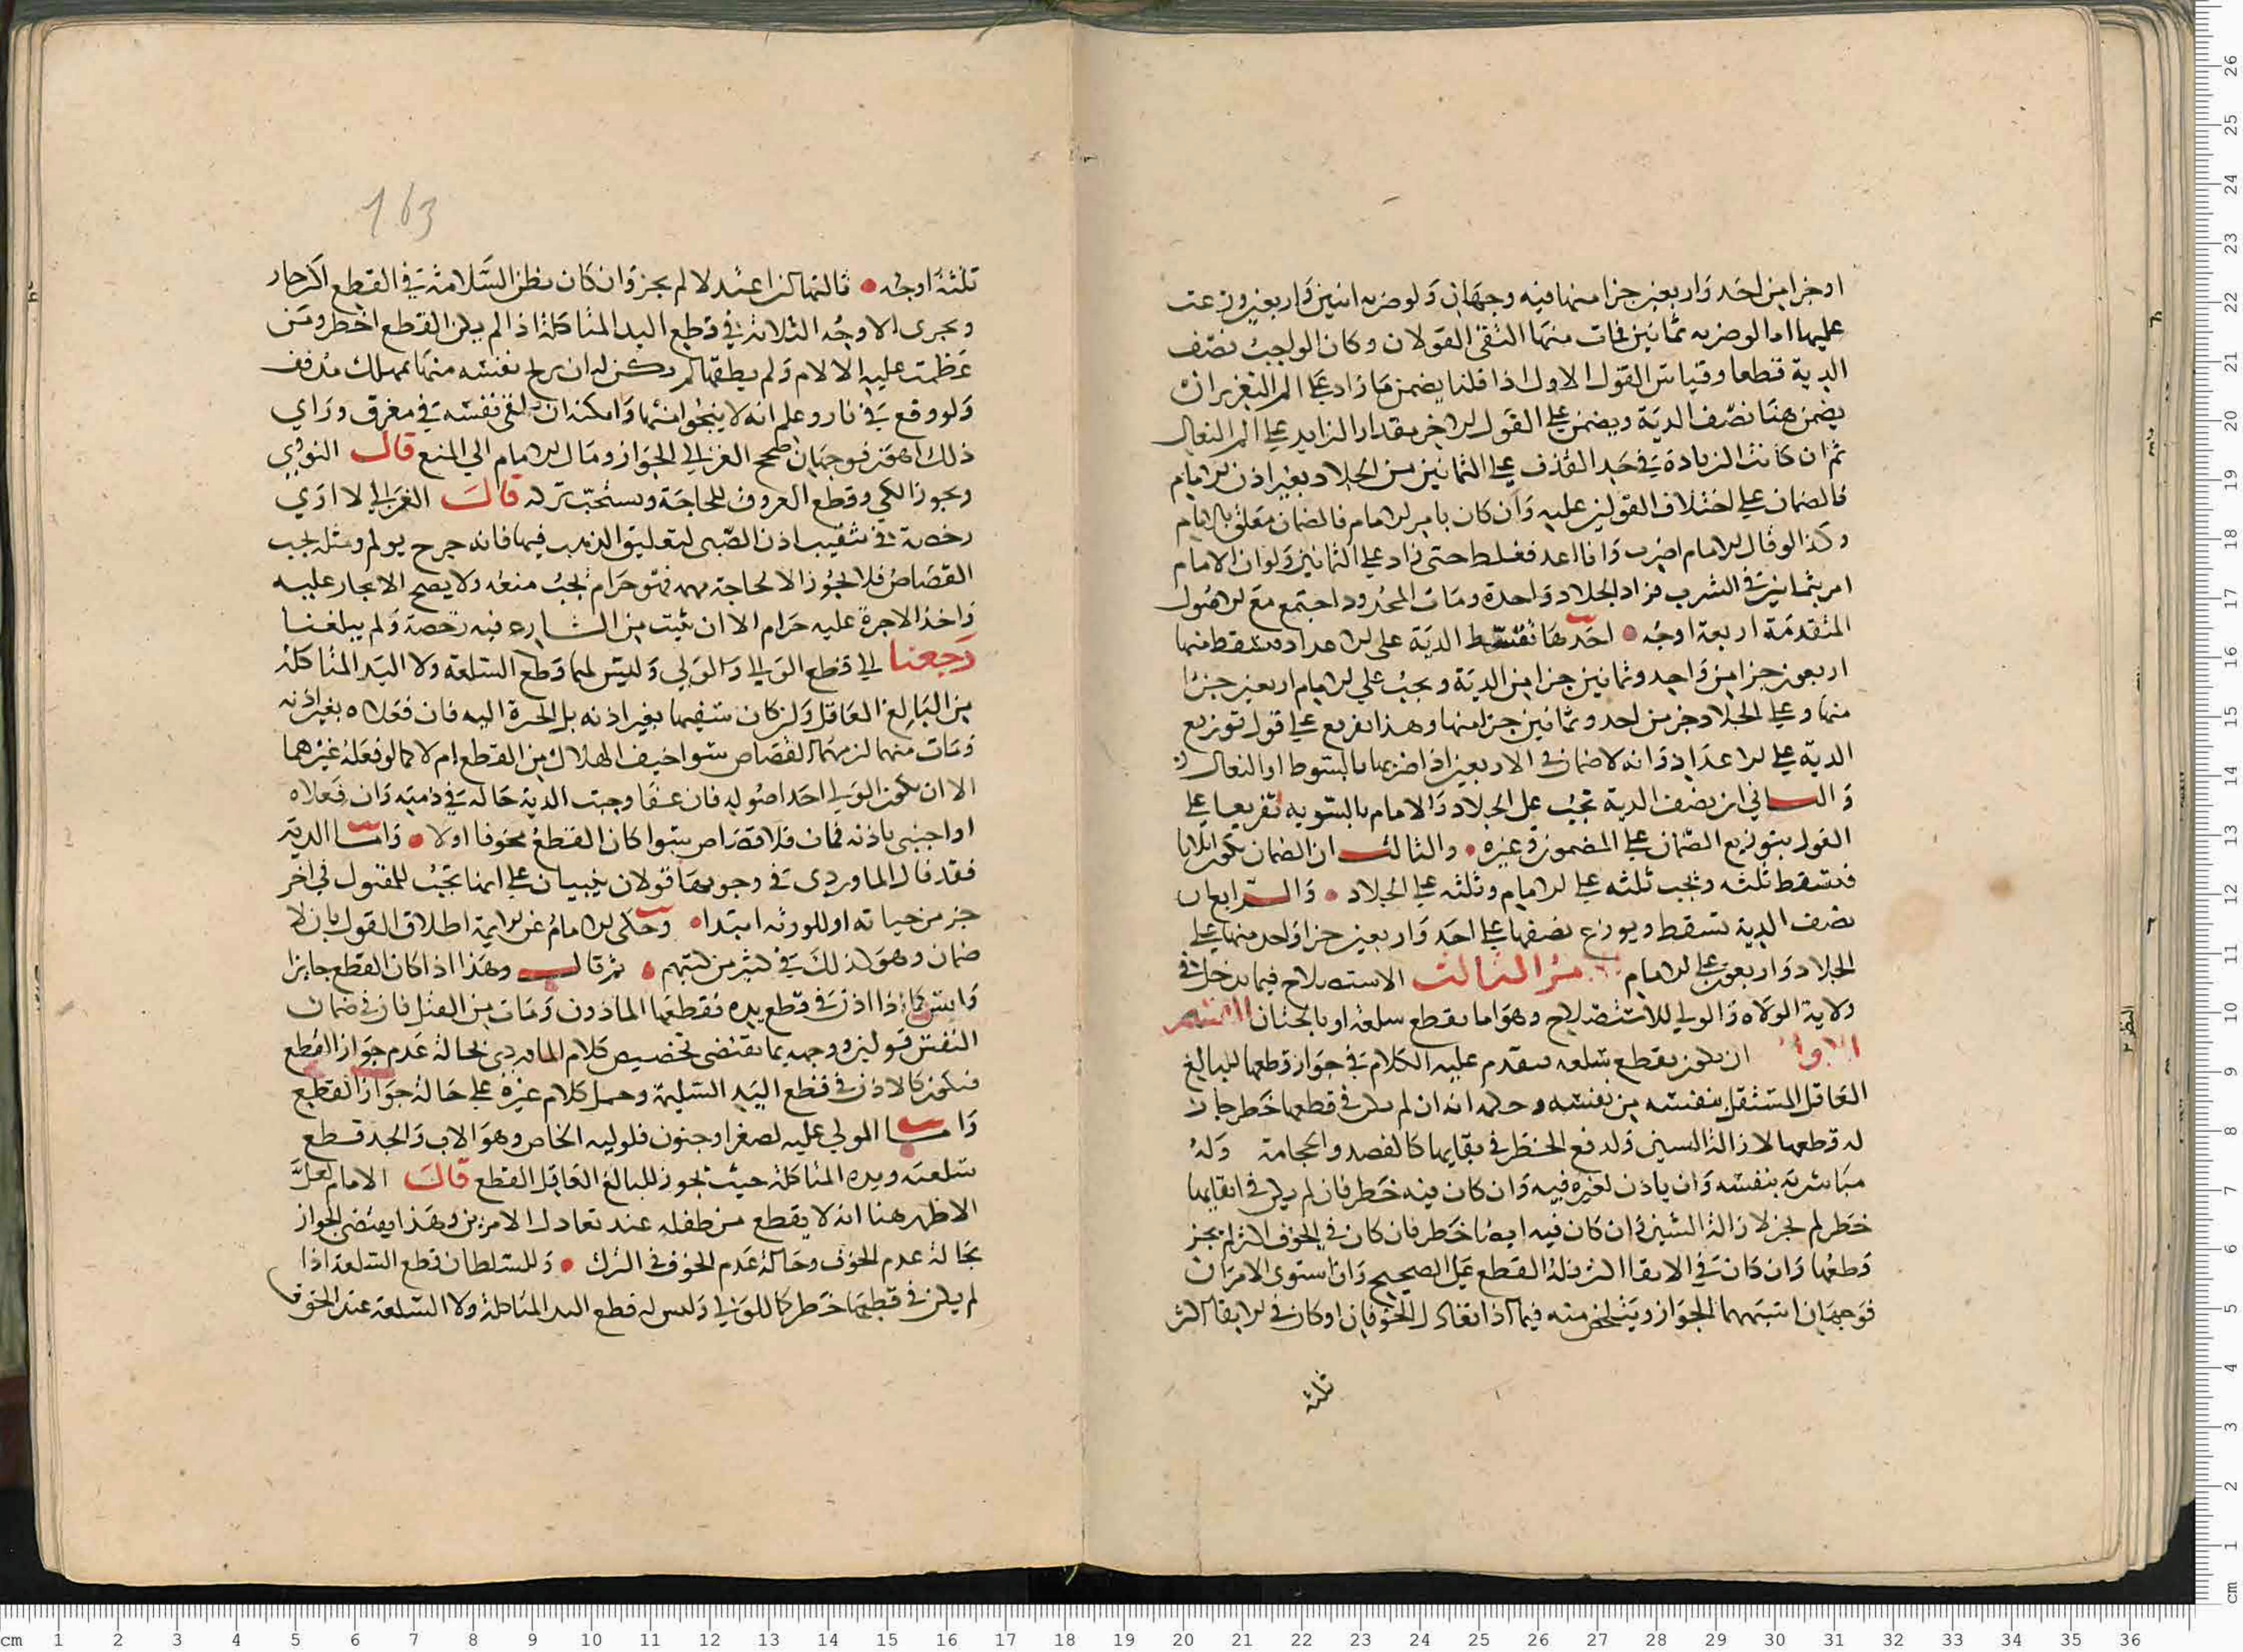 او جزا من احد واربعين جزا منها فيه وجهان ولو ضربه اثنين واربعين وزعت
عليها اما لو ضربه ثمانين فمات منها اتفقى القولان وكان الواجب نصف
الدية قطعا وقياس القول الاول اذا قلنا يضمن ما زاد على الم التعزير ان
يضمن هنا نصف الدية ويضمن على القول الاخر مقدار الزايد على الم النعال
ثم ان كانت الزيادة في حد القذف على الثمانين من الجلاد بغير اذن الامام
فالضمان على اختلاف القولين عليه وان كان بامر الامام فالضمان متعلق بالامام
وكذا لو قال الامام اضرب وانا اعد فغلط حتى زاد على الثمانين ولو ان الامام
امر بثمانين في الشرب فزاد الجلاد واحدة ومات المحدود اجتمع مع الاصول
المتقدمة اربعة اوجه احدها تقسط الدية على الاعداد فتسقط منها
اربعون جزا من واحد وثمانين جزا من الدية ويجب على الامام اربعين جزا
منها وعلى الجلاد جز من احد وثمانين جزا منها وهذا تفريع على قول توزيع
الدية على الاعداد وانه لا ضمان في الاربعين اذا ضربها بالسوط او النعال
والثاني ان نصف الدية تجب على الجلاد والامام بالتسويه تفريعا على
القول بتوزيع الضمان على المضمون وغيره والثالث ان الضمان يكون اثلاثا
فتسقط ثلثه وتجب ثلثه على الامام وثلثه على الجلاد والرابع ان
نصف الدية تسقط ويوزع نصفها على احد واربعين جزا واحد منها على
الجلاد واربعون على الامام الثالث الاستصلاح فيما يدخل في
ولاية الولاه والولي للاستصلاح وهو اما بقطع سلعه او بالختان القسم
الاول ان يكون بقطع سلعه سيقدم عليه الكلام في جواز قطعها للبالغ
العاقل المستقل بنفسه من نفسه وحكمه انه ان لم يكن في قطعها خطر جاز
له قطعها لازالة الشين ولدفع الخطر في بقايها كالفصد والحجامة وله
مباشرته بنفسه وان ياذن لغيره فيه وان كان فيه خطر فان لم يكن في ابقايها
خطر لم يجز لازالة الشين وان كان فيه ايضا خطر فان كان في الخوف اكثر لم يجز
قطعها وان كانت في الابقا اكثر فله القطع على الصحيح وان استوى الامران
فوجهان اشبههما الجواز ويتلخص منه فيما اذا تعادل الخوفان او كان في الابقا اكثر
ثلثه
163
ثلثة اوجه ثالثها كذا عند لا لم يجز وان كان يظن السلامة في القطع اكثر جاز
ويجري الاوجه الثلاثة في قطع اليد المتاكلة اذا لم يكن القطع اخطر ومن
عظمت عليه الالام ولم يطقها لم يكن له ان يريح نفسه منها بمهلك مذفف
ولو وقع في نار وعلم انه لا ينجو منها وامكنه ان يلقي نفسه في مغرق وراي
ذلك اهون فوجهان صحح الغزالي الجواز ومال الامام الى المنع قال النووي
ويجوز الكي وقطع العروق للحاجة ويستحب تركه قال الغزالي لا اري
رخصة في تثقيب اذن الصبي لتعليق الذهب فيها فانه جرح يولم ومثله يجب
القصاص فلا يجوز الا لحاجة مهمه فهو حرام يجب منعه ولا يصح الايجار عليه
واخذ الاجرة عليه حرام الا ان ثبت من الشارع فيه رخصة ولم يبلغنا
رجعنا الى قطع الوالي والولي وليس لهما قطع السلعه ولا اليد المتاكله
من البالغ العاقل ولو كان سفيها بغير اذنه بل الخيرة اليه فان فعلاه بغير اذنه
ومات منهما لزمهما القصاص سوا خيف الهلاك من القطع ام لا كما لو فعله غيرها
الا ان يكون الولي احد اصوله فان عفا وجبت الدية حاله في ذمته وان فعلاه
او اجنبي باذنه فمات فلا قصاص سوا كان القطع مخوفا اولا واما الدية
فقد قال الماوردي في وجوبها قولان مبنيان على انها تجب للمقتول في اخر
جز من حياته او للورثه ابتدا وحكى الامام عن الايمة اطلاق القول بان لا
ضمان وهو كذلك في كثير من كتبهم ثم قال وهذا اذا كان القطع جايزا
اذا اذن في قطع يده فقطعها الماذون ومات من القتل فان في ضمان
النفس قولين ووجهه بما يقتضي تخصيص كلام الماوردي بحالة عدم جواز القطع
فيكون كالاذن في قطع اليد السليمة وحمل كلام غيره على حالة جواز القطع
واما المولي عليه لصغر او جنون فلوليه الخاص وهو الاب والجد قطع
سلعته ويده المتاكلة حيث يجوز للبالغ العاقل القطع قال الامام لعل
الاظهر هنا انه لا يقطع من طفله عند تعادل الامرين وهذا يقتضي الجواز
بحالة عدم الخوف وحالة عدم الخوف في الترك وللسلطان قطع السلعة اذا
لم يكن في قطعها خطر كاللولي وليس له قطع اليد المتاكلة ولا السلعة عند الخوف